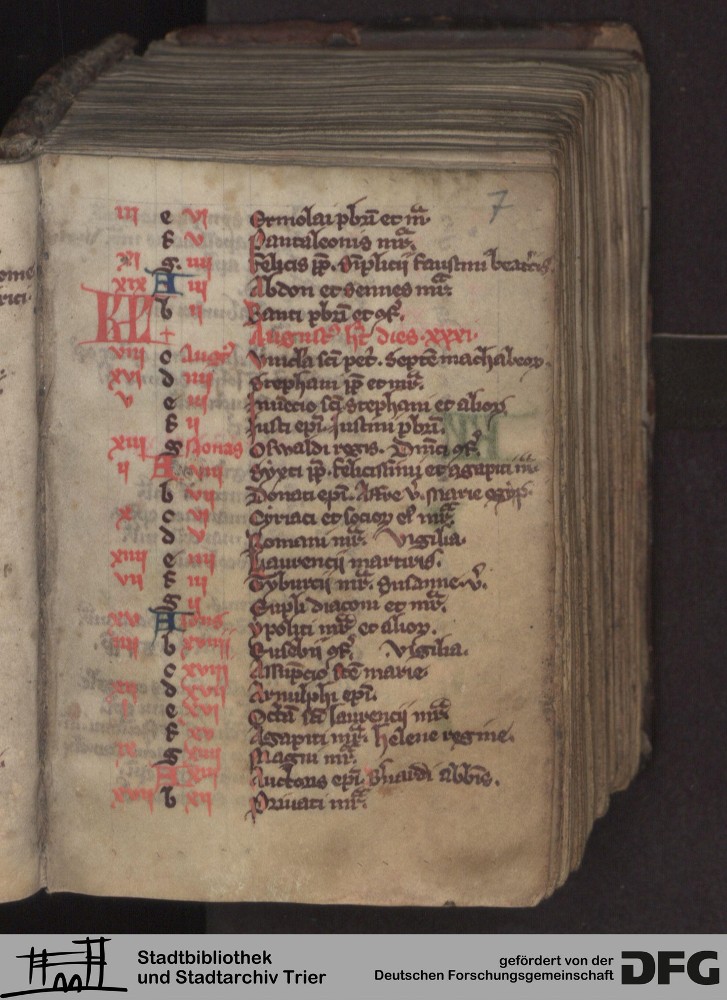 7
iii e vi Ermolai pbri et mr.
f v Pantaleonis mr.
g iiii Felicis pp. Simplicii faustini beatricis.
xix A iii Abdon et sennes mr.
b ii Sancti pbri et 9f.
KL Augustus ht dies xxxi.
viii c Augustus Vincla sci pet. Septe machabeor.
xvi d iiii Stephani pp et mr.
v e iii Inuecio sci Stephani et alior.
f ii Iusti epi. Iustini pbri.
xiii g Nonas Oswaldi regis. Dnici 9f.
ii A viii Syxti pp. felicissimi et agapiti mr.
b vii Donati epi. Affre v. Marie egyp.
x c vi Cyriaci et socior ei mr.
d v Romani mr. Vigilia.
xviii e iiii Laurencij martiris.
vii f iii Tyburcij mr. Susanne v.
g ii Eupli diaconi et mr.
xv A Idus ypoliti mr et alior.
iiii b xviiii Eusebii 9f. Vigilia.
c xviii Assupcio scte marie
xii d xvii Arnulphi epi.
i e xvi Octa sci laurencij mr
f xv Agapiti mr. helene regine.
ix g Magni mr.
A xiii Auctoris epi. Bnardi abbis.
b xii Priuati mr.
Stadtbibliothek
und Stadtarchiv Trier
gefördert von der
Deutschen Forschungsgemeinschaft
DFG